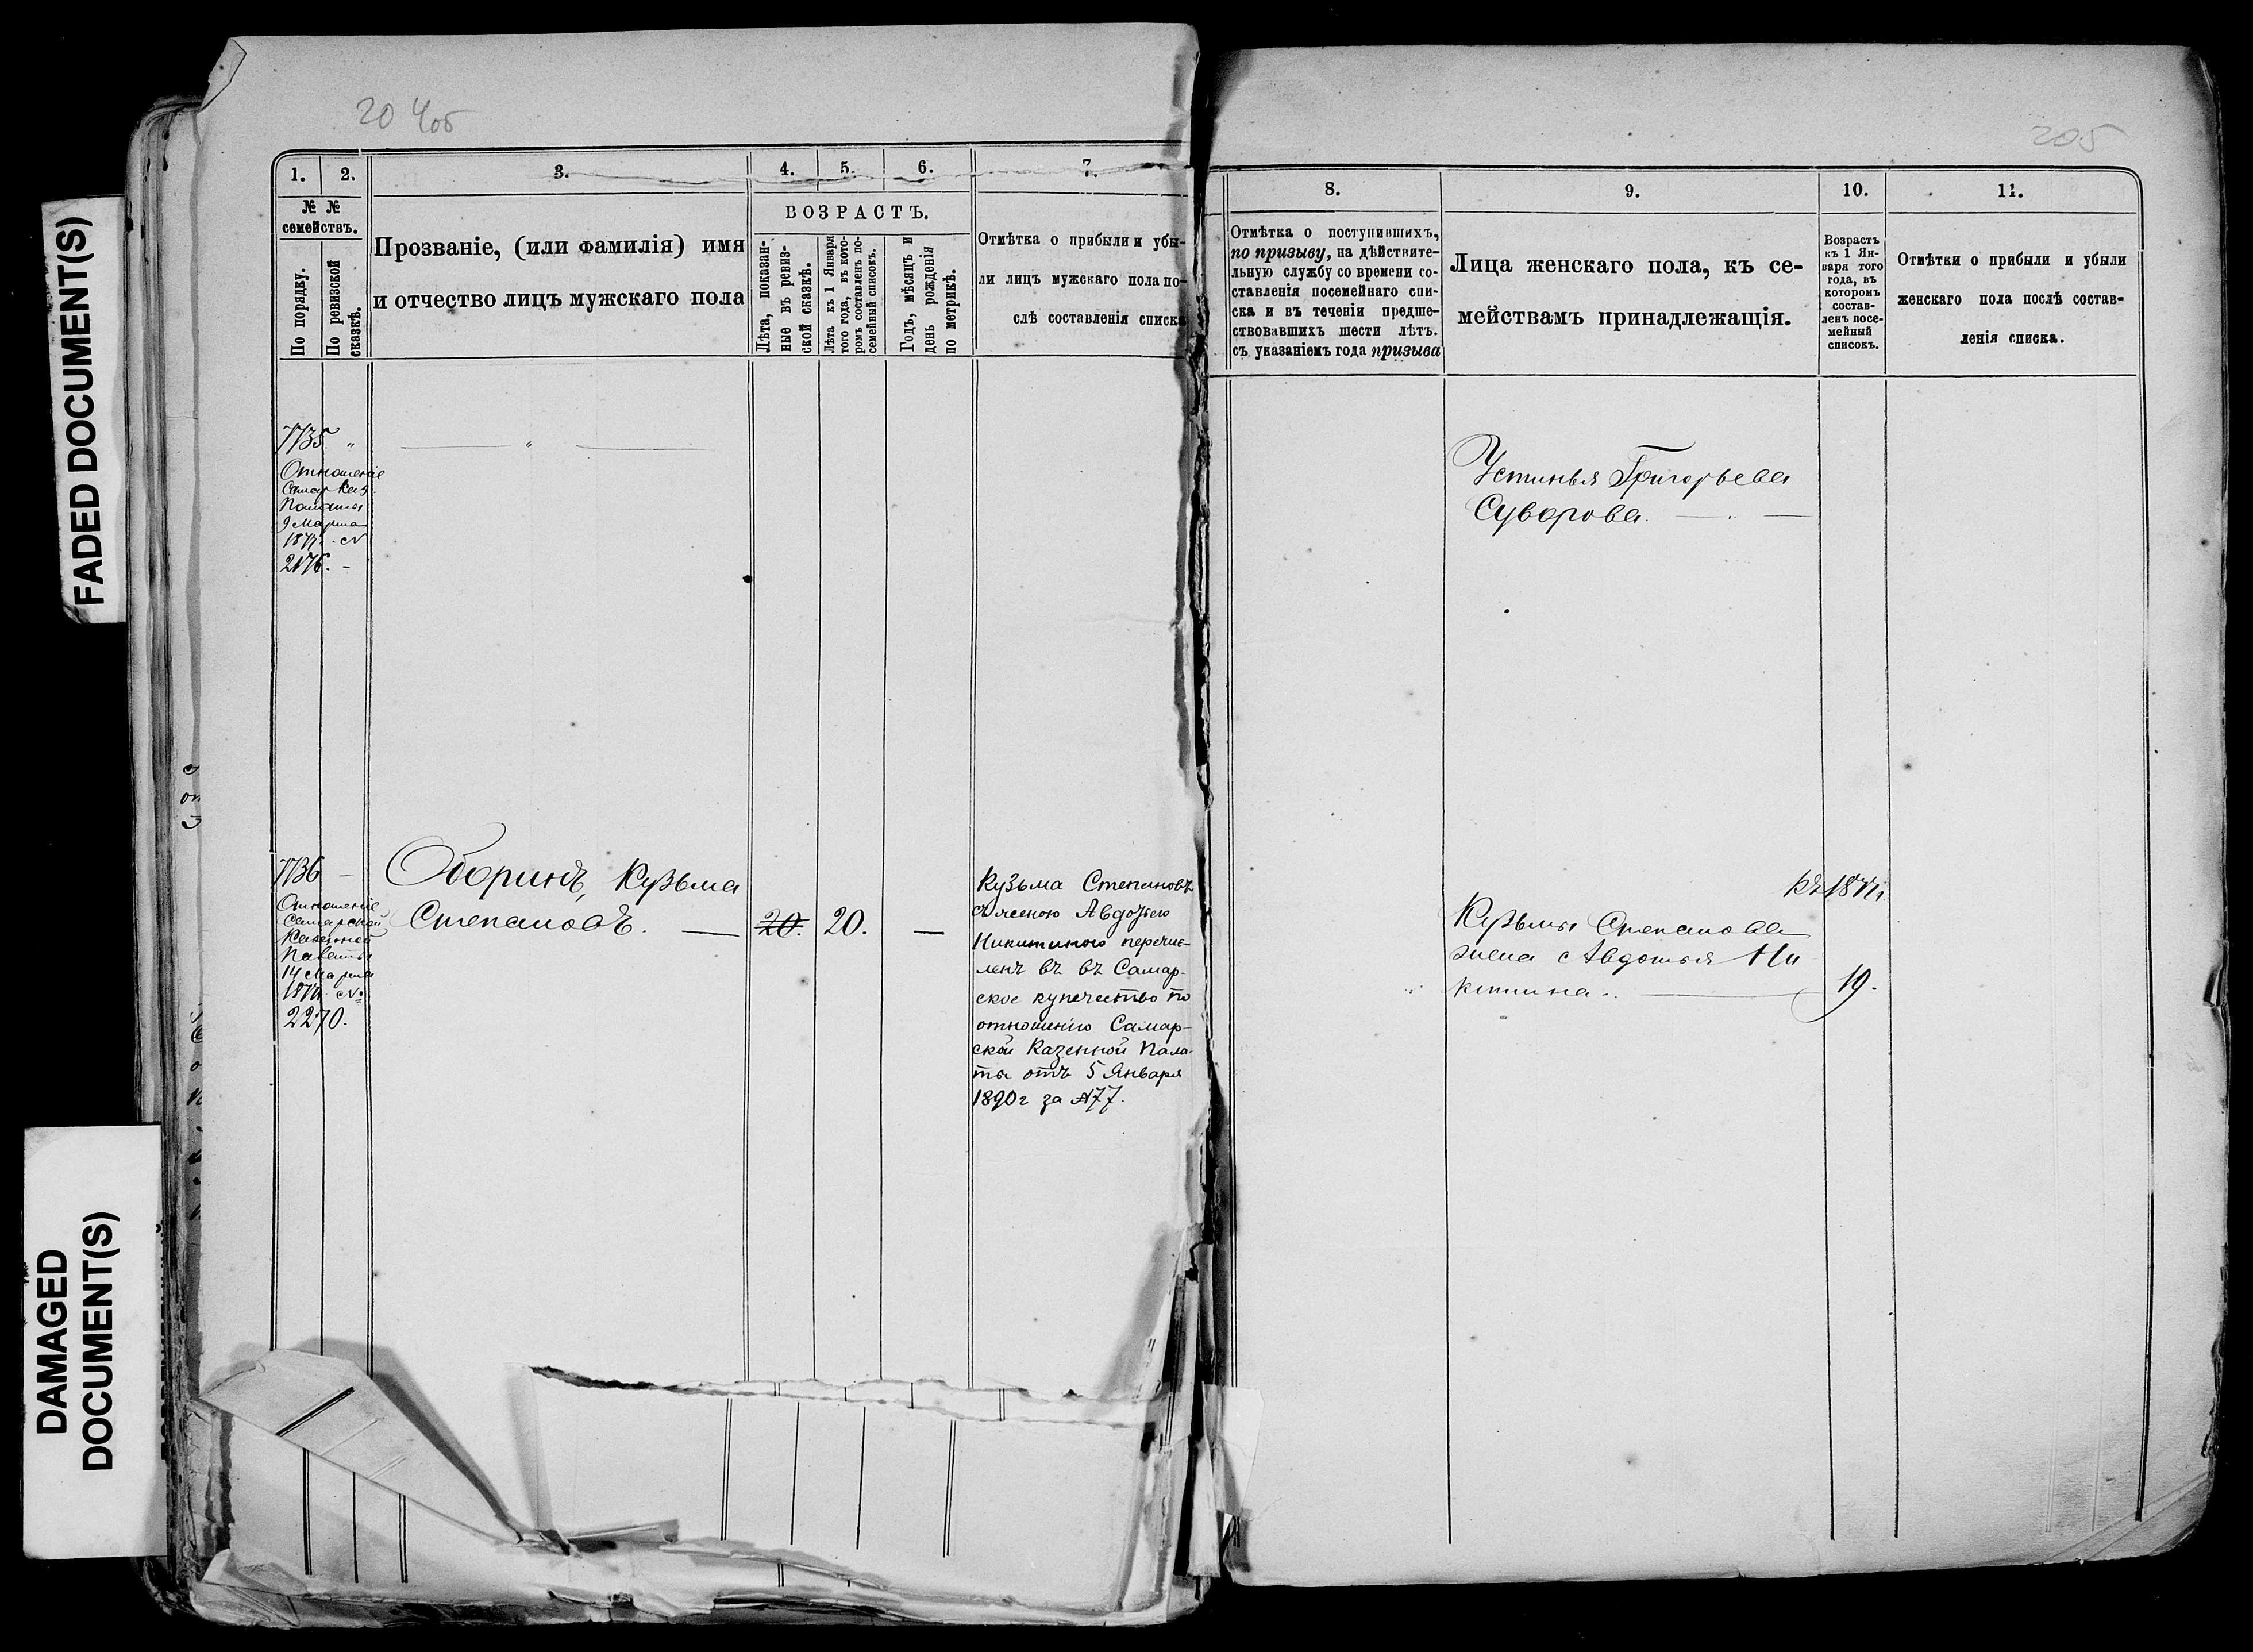 FADED DOCUMENT(S)
DAMAGED
DOCUMENT(S)
204 об
1. 2. 3. 4. 5. 6. 7.
№ № семействъ.
По порядку.
По ревизской сказкѣ.
Прозваніе, (или фамилія) имя
и отчество лицъ мужскаго пола
ВОЗРАСТЪ.
Лѣта, показан-
ные въ ревиз-
ской сказкѣ.
Лѣта къ 1 Января
того года, въ кото-
ромъ составленъ по-
семейный списокъ.
Годъ, мѣсяцъ и
день рожденія
по метрикѣ.
Отмѣтка о прибыли и убы-
ли лицъ мужскаго пола по-
слѣ составленія списка
7735 "
Отношеніе
Самар Каз.
Палаты
9 Марта
187 г. №
2176. -
7736 —
Отношеніе
Самарской
Казенной
Палаты
14 Марта
187 г. №
2270.
Оборинъ, Кузьма
Степановъ. — 20. 20. —
Кузьма Степановъ
съ женою Авдотьею
Никитиною перечис-
ленъ въ въ Самар-
ское купечество по
отношенію Самар-
ской Казенной Пала-
ты отъ 5 Января
1890 г за №77.
205
8. 9. 10. 11.
Отмѣтка о поступившихъ,
по призыву, на дѣйствите-
льную службу со времени со-
ставленія посемейнаго спи-
ска и въ теченіи предше-
ствовавшихъ шести лѣтъ.
съ указаніемъ года призыва
Лица женскаго пола, къ се-
мействамъ принадлежащія.
Возрастъ
къ 1 Ян-
варя того
года, въ
которомъ
состав-
ленъ посе-
мейный
списокъ.
Отмѣтки о прибыли и убыли
женскаго пола послѣ состав-
ленія списка.
Устинья Григорьева
Суворова. — . —
Кузьмы Степанова
жена Авдотья Ни
китина. — 19.